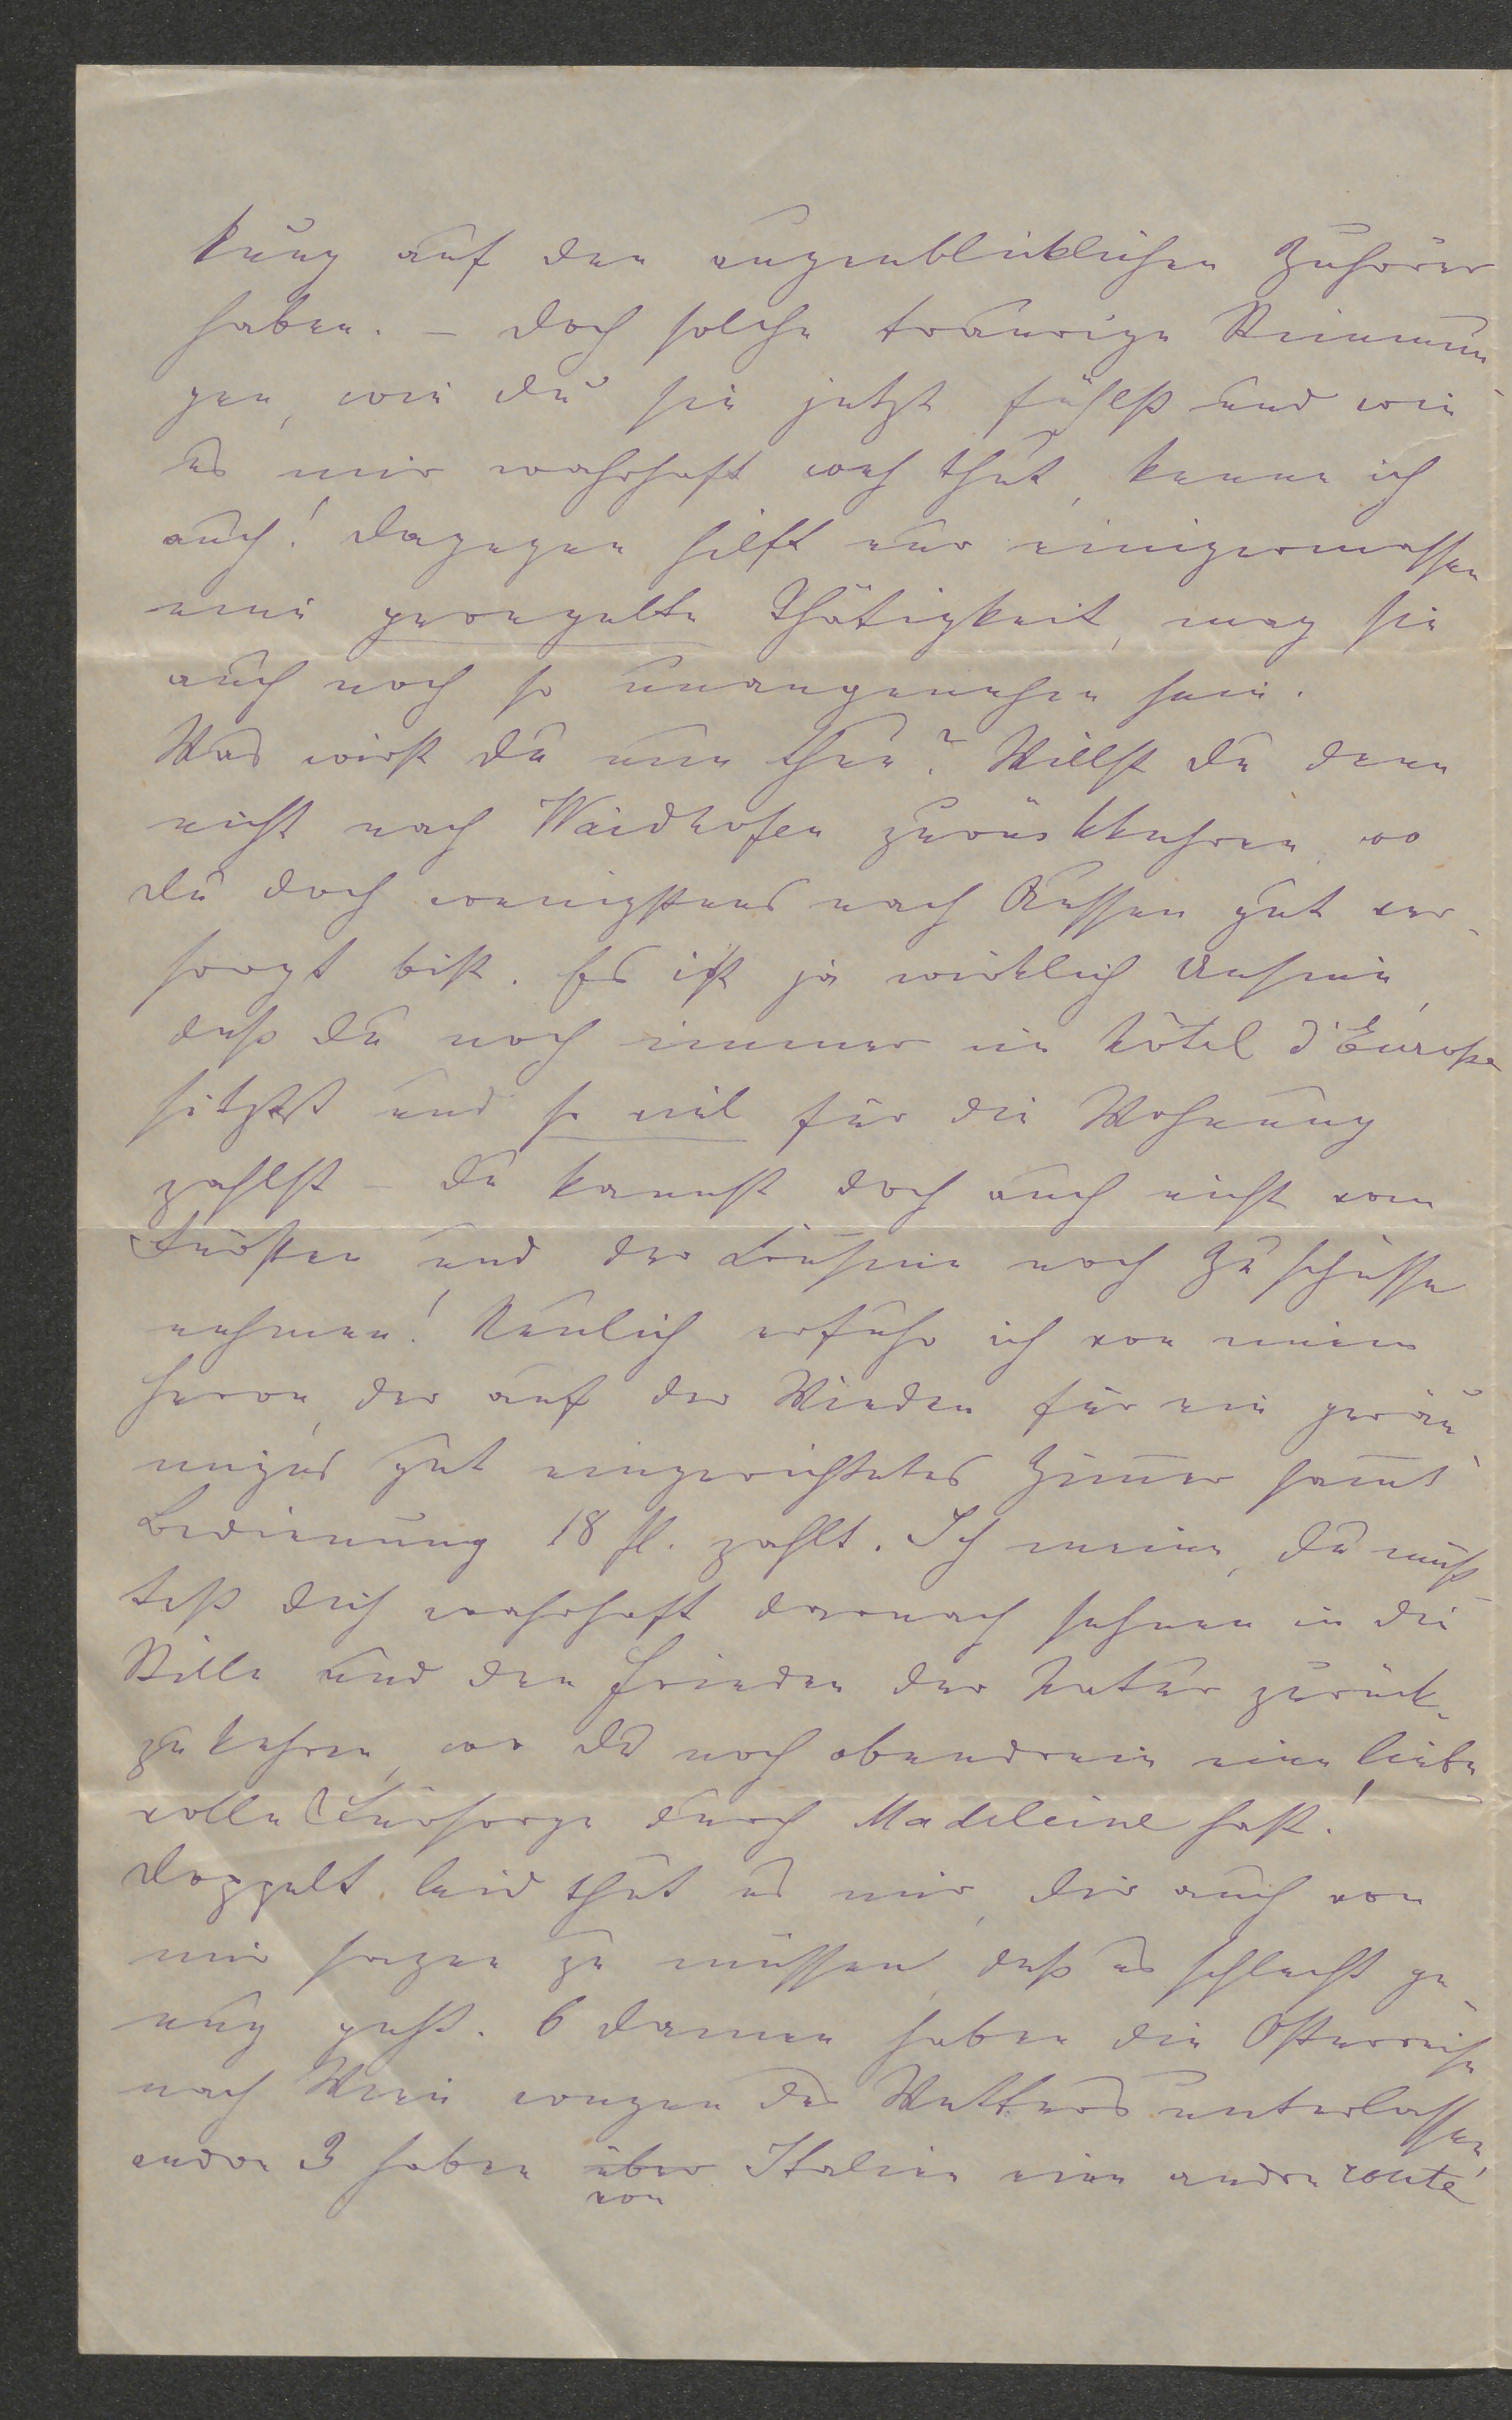 kung auf den augenblicklichen Zuhörer
haben. – Doch solche traurige Stimmun-
gen, wie du sie jetzt fühlst und wie
es mir wahrhaft weh thut, kenne ich
auch! Dagegen hilft nur einigermassen
eine geregelte Thätigkeit, mag sie
auch noch so unangenehm sein.
Was wirst du nun thun? Willst du denn
nicht nach Waidhofen zurückkehren, wo
du doch wenigstens nach Aussen gut ver-
sorgt bist. Es ist ja wirklich Unsinn,
daß du noch immer im hôtel d'Europe
sitzst und so viel für die Wohnung
zahlst – du kannst doch auch nicht vom
Fürsten und der Cousine noch Zuschüsse
nehmen! Neulich erfuhr ich von einem
Herrn, der auf der Wieden für ein geräu-
miges gut eingerichtetes Zimmer samt
Bedienung 18 fl. zahlt. Ich meine, du müß-
test dich wahrhaft darnach sehnen in die
Stille und den Frieden der Natur zurück-
zukehren, wo du noch obendrein eine liebe-
volle Fürsorge durch Madeleine hast!
Doppelt leid thut es mir, dir auch von
mir sagen zu müssen, daß es schlecht ge-
nug geht. 6 Damen haben die Osterreise
nach Wien wegen des Wetters unterlassen,
andre 3 haben über Italien eine andre route
von